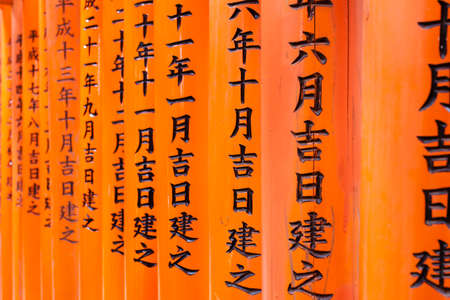 十月吉日建之
年六月吉日建之
六年十月吉日建之
十一年一月吉日建之
十年十一月吉日建之
二十年十二月吉日建之
成二十一年九月吉日建之
平成十三年十月吉日建之
平成十七年八月吉日建之